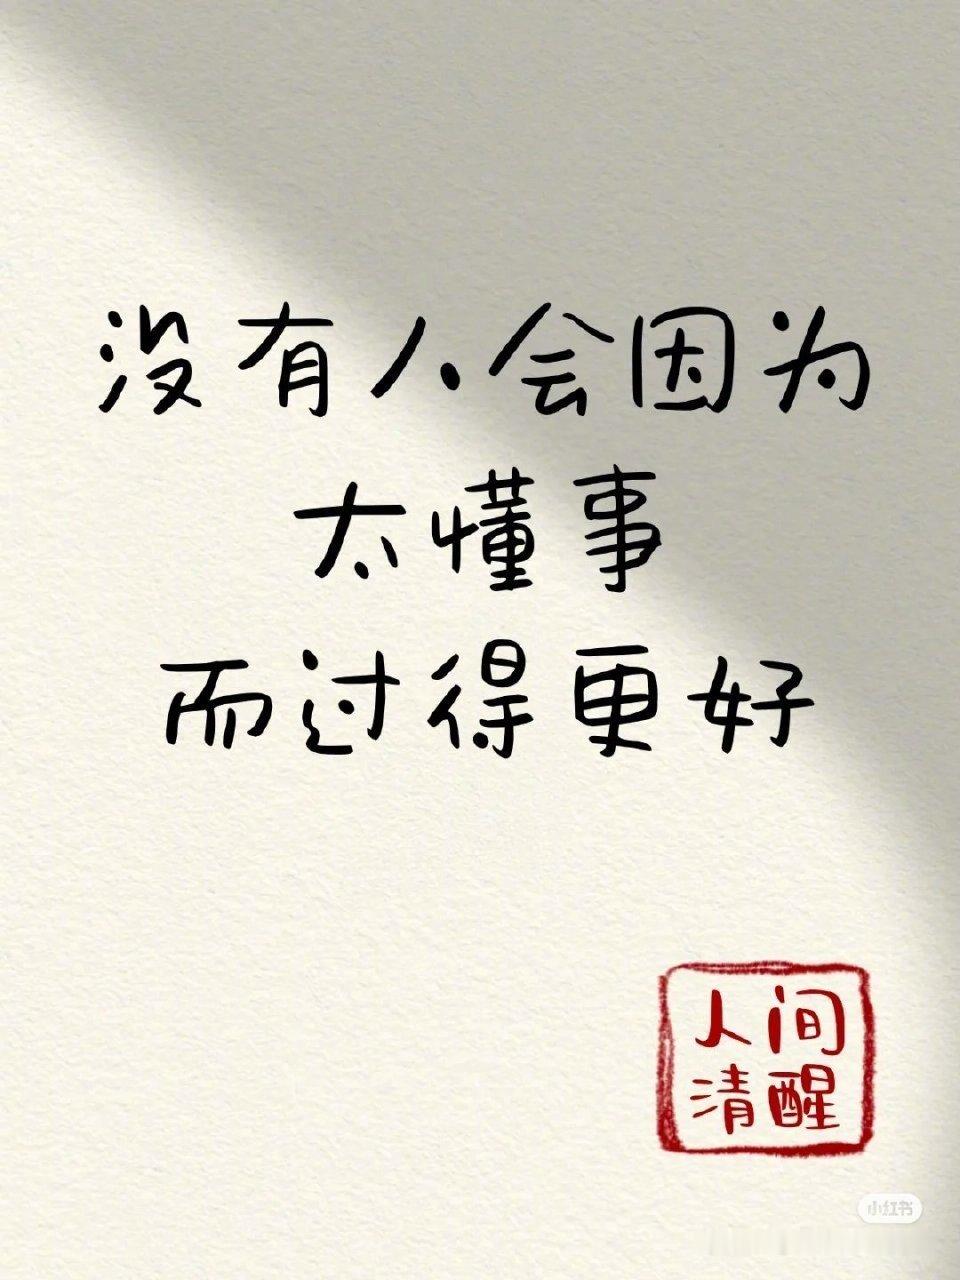 没有人会因为
太懂事
而过得更好
人间
清醒
小红书